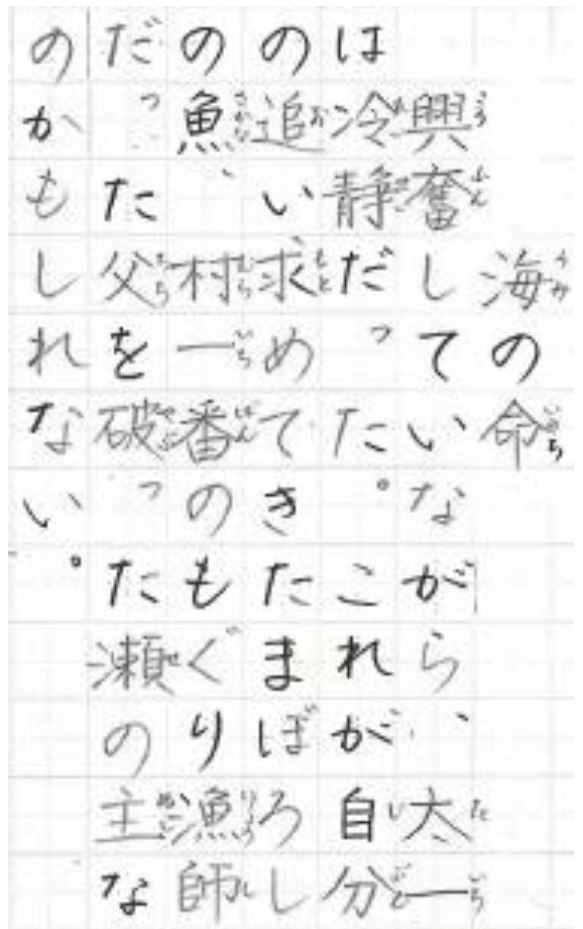 海の命
興奮していながら、太一
は冷静だった。これが自分
の追い求めてきたまぼろし
の魚、村一番のもぐり漁師
だった父を破った瀬の主な
のかもしれない。